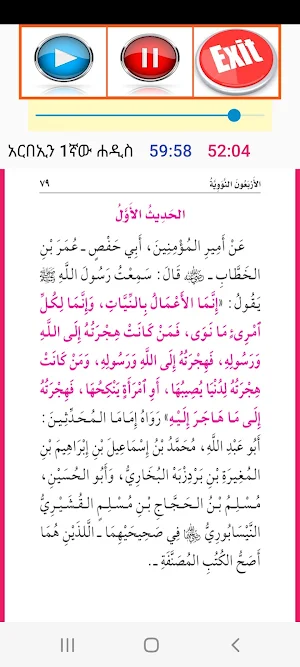 Exit
አርበኢን 1ኛው ሐዲስ 59:58 52:04
٧٩ الأَرْبَعُونَ النَّوَوِيَّةُ
الحَدِيثُ الأَوَّلُ
عَنْ أَمِيرِ المُؤْمِنِينَ، أَبِي حَفْصٍ ـ عُمَرَ بْنِ
الخَطَّابِ ـ رضي الله عنه قَالَ: سَمِعْتُ رَسُولَ اللَّهِ ﷺ
يَقُولُ: «إِنَّمَا الأَعْمَالُ بِالنِّيَّاتِ، وَإِنَّمَا لِكُلِّ
امْرِىءٍ مَا نَوَى، فَمَنْ كَانَتْ هِجْرَتُهُ إِلَى اللَّهِ
وَرَسُولِهِ، فَهِجْرَتُهُ إِلَى اللَّهِ وَرَسُولِهِ، وَمَنْ كَانَتْ
هِجْرَتُهُ لِدُنْيَا يُصِيبُهَا، أَوِ امْرَأَةٍ يَنْكِحُهَا، فَهِجْرَتُهُ
إِلَى مَا هَاجَرَ إِلَيْهِ» رَوَاهُ إِمَامَا المُحَدِّثِينَ:
أَبُو عَبْدِ اللَّهِ، مُحَمَّدُ بْنُ إِسْمَاعِيلَ بْنِ إِبْرَاهِيمَ بْنِ
المُغِيرَةِ بْنِ بَرْدِزْبَهْ البُخَارِيُّ، وَأَبُو الحُسَيْنِ،
مُسْلِمُ بْنُ الحَجَّاجِ بْنِ مُسْلِمٍ القُشَيْرِيُّ
النَّيْسَابُورِيُّ فِي صَحِيحَيْهِمَا ـ الَّلذَيْنِ هُمَا
أَصَحُّ الكُتُبِ المُصَنَّفَةِ ـ.